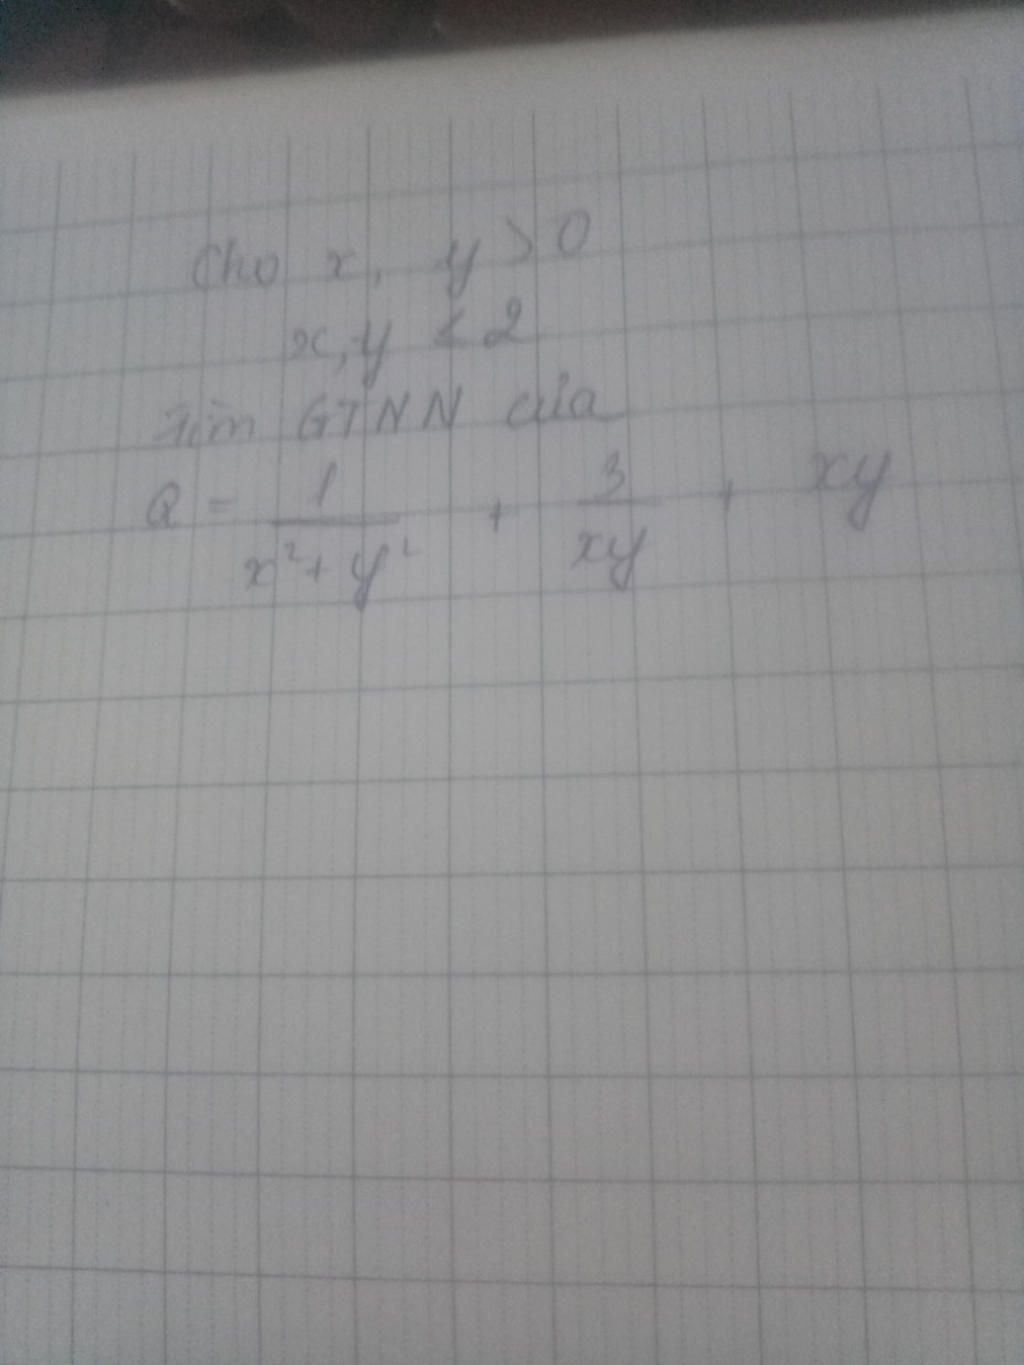 Cho x, y > 0
x, y ≤ 2
Tìm GTNN của
Q = 1/(x² + y²) + 3/(xy) + xy